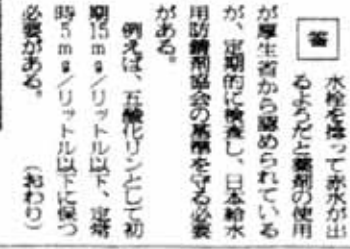 答
水栓を捻って赤水が出
るようだと薬剤の使用
が厚生省から認められている
が、定期的に検査し、日本給水
用防錆剤協会の基準を守る必要
がある。
例えば、五酸化リンとして初
期15mg/リットル以下、定常
時5mg/リットル以下に保つ
必要がある。 (おわり)